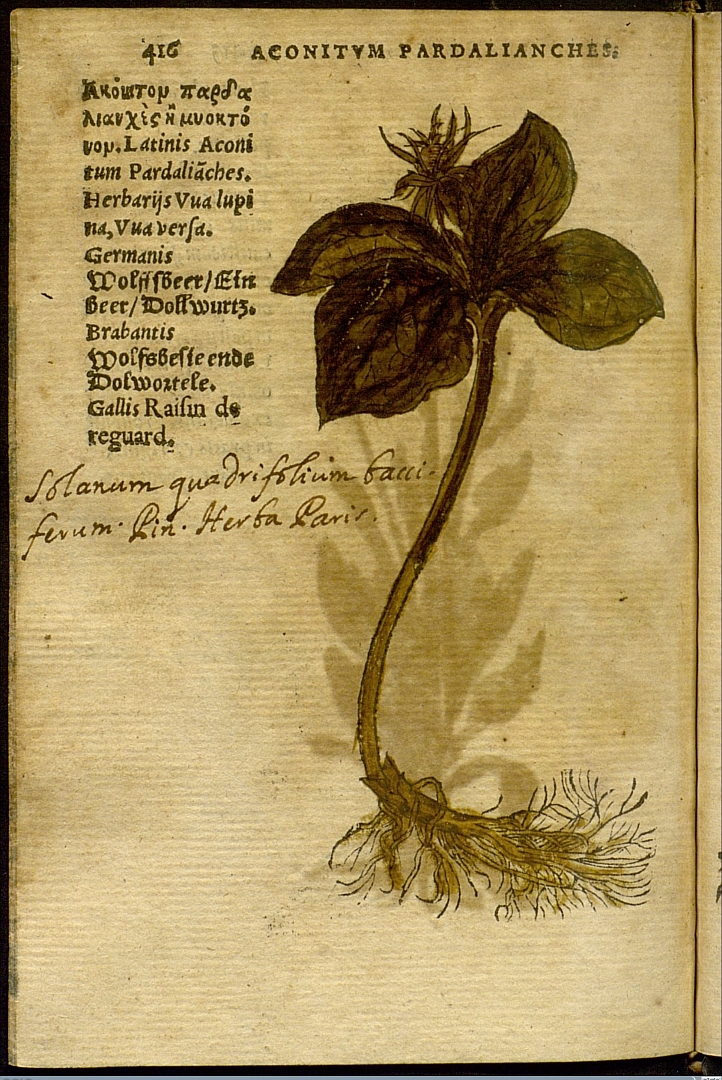 416 ACONITVM PARDALIANCHES.
Ἀκόνιτον παρδα
λιαγχὲς ἢ μυοκτό
νον. Latinis Aconi
tum Pardaliāches.
Herbarijs Vua lupi
na, Vua verſa.
Germanis
Wolffsbeer/Ein
Beer/Dollwurtz.
Brabantis
Wolfsbeſie ende
Dolwortele.
Gallis Raiſin de
reguard.
Solanum quadrifolium bacci-
ferum. Pin. Herba Paris.